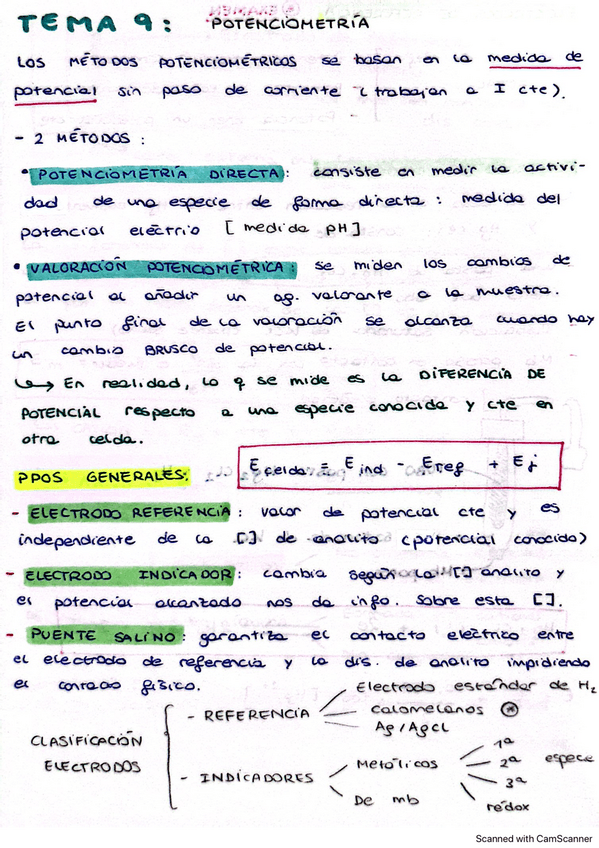 TEMA 9: POTENCIOMETRÍA
LOS MÉTODOS POTENCIOMÉTRICOS se basan en la medida de
potencial sin paso de corriente (trabajan a I cte).
- 2 MÉTODOS:
• POTENCIOMETRÍA DIRECTA: consiste en medir la activi-
dad de una especie de forma directa: medida del
potencial eléctrio [medida pH]
• VALORACIÓN POTENCIOMÉTRICA: se miden los cambios de
potencial al añadir un ag. valorante a la muestra.
El punto final de la valoración se alcanza cuando hay
un cambio BRUSCO de potencial.
↳ En realidad, lo q se mide es la DIFERENCIA DE
POTENCIAL respecto a una especie conocida y cte en
otra celda.
PPOS GENERALES: Ecelda = Eind - Eref + Ej
- ELECTRODO REFERENCIA: valor de potencial cte y es
independiente de la [] de analito (potencial conocido)
- ELECTRODO INDICADOR: cambia según la [] analito y
el potencial alcanzado nos da info. sobre esta [].
- PUENTE SALINO: garantiza el contacto eléctrico entre
el electrodo de referencia y la dis. de analito impidiendo
el contacto físico.
CLASIFICACIÓN ELECTRODOS
- REFERENCIA
Electrodo estándar de H2
Calomelanos ⊛
Ag/AgCl
- INDICADORES
Metálicos
1ª
2ª especie
3ª
rédox
De mb
Scanned with CamScanner